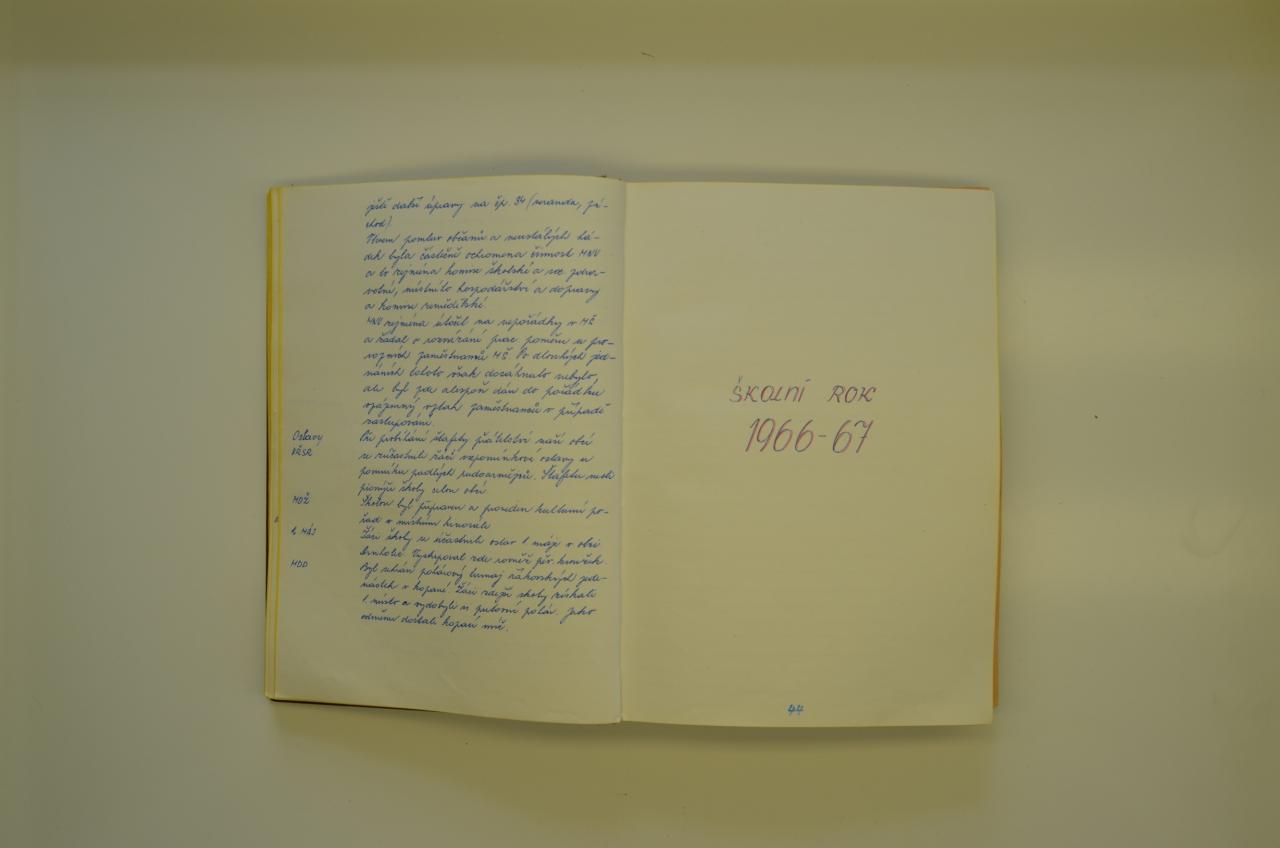 ještě další úpravy na čp. 94 (veranda, zá-
chod)
Vlivem pomluv občanů a neustálých há-
dek byla částečně ochromena činnost MNV
a to zejména komise školské a soc. zdra-
votní, místního hospodářství a dopravy
a komise zemědělské.
MNV zejména útočil na nepořádky v MŠ
a žádal o rozvázání prac. poměru u pro-
vozních zaměstnanců MŠ. Po dlouhých jed-
náních tohoto však dosáhnuto nebylo,
ale byl zde alespoň dán do pořádku
vzájemný vztah zaměstnanců v případě
zastupování.
Oslavy
VŘSR
Při probíhání štafety přátelství naší obcí
se zúčastnili žáci vzpomínkové oslavy u
pomníku padlých rudoarmějců. Štafetu nesli
pionýři školy celou obcí.
MDŽ
Školou byl připraven a proveden kulturní po-
řad v místním kinosále
1. MÁJ
Žáci školy se účastnili oslav 1. máje v obci
Drnholec. Vystupoval zde rovněž pěv. kroužek.
MDD
Byl sehrán pohárový turnaj žákovských jede-
náctek v kopané. Žáci zdejší školy získali
1. místo a vydobyli si putovní pohár. Jako
odměnu dostali kopací míč.
ŠKOLNÍ ROK
1966-67
44